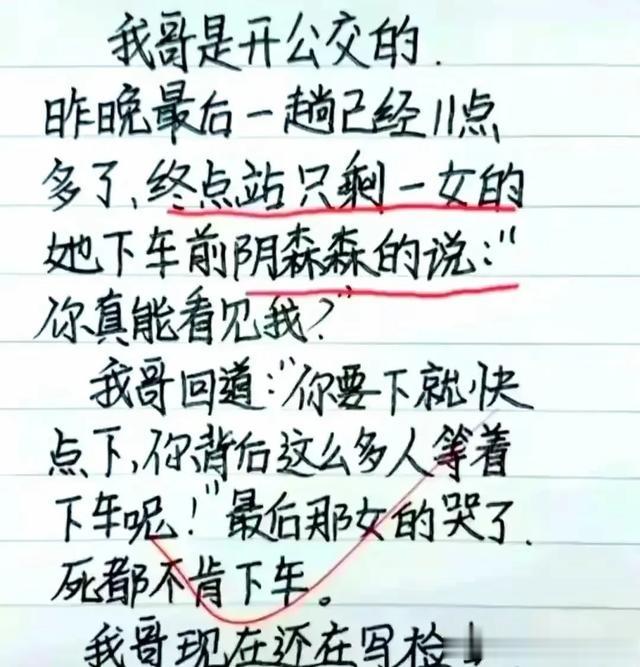 我哥是开公交的.
昨晚最后一趟已经11点
多了,终点站只剩一女的
她下车前阴森森的说:"
你真能看见我?"
我哥回道:"你要下就快
点下,你背后这么多人等着
下车呢!"最后那女的哭了.
死都不肯下车。
我哥现在还在写检